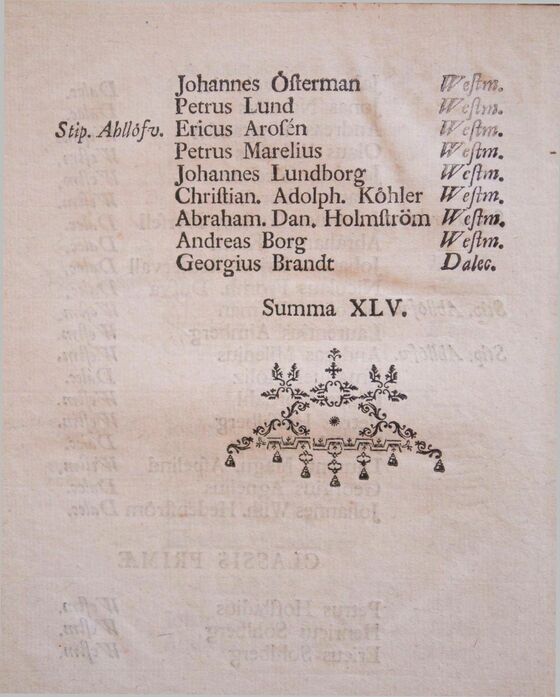 Johannes Öſterman Weſtm.
Petrus Lund Weſtm.
Stip. Ahllöfv. Ericus Aroſén Weſtm.
Petrus Marelius Weſtm.
Johannes Lundborg Weſtm.
Chriſtian. Adolph. Köhler Weſtm.
Abraham. Dan. Holmſtröm Weſtm.
Andreas Borg Weſtm.
Georgius Brandt Dalec.
Summa XLV.